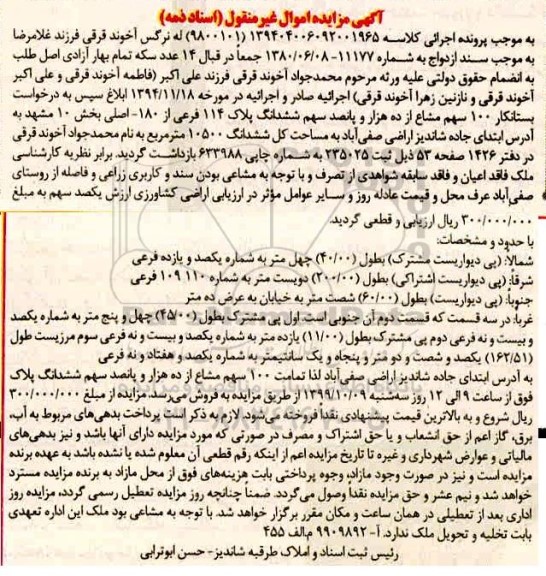 آگهی مزایده اموال غیر منقول (اسناد ذمه)
به موجب پرونده اجرائی کلاسه ۱۳۹۴۰۴۰۰۶۰۹۲۰۰۱۹۶۵ (۹۸۰۰۱۰۱) له نرگس آخوند قرقی فرزند غلامرضا
به موجب سند ازدواج به شماره ۱۱۱۷۷-۱۳۸۰/۰۶/۰۸ جمعاً در قبال ۱۴ عدد سکه تمام بهار آزادی اصل طلب
به انضمام حقوق دولتی علیه ورثه مرحوم محمدجواد آخوند قرقی فرزند علی اکبر (فاطمه آخوند قرقی و علی اکبر
آخوند قرقی و نازنین زهرا آخوند قرقی) اجرائیه صادر و اجرائیه در مورخه ۱۳۹۴/۱۱/۱۸ ابلاغ سپس به درخواست
بستانکار ۱۰۰ سهم مشاع از ده هزار و پانصد سهم ششدانگ پلاک ۱۱۴ فرعی از ۱۸۰- اصلی بخش ۱۰ مشهد به
آدرس ابتدای جاده شاندیز اراضی صفی‌آباد به مساحت کل ششدانگ ۱۰۵۰۰ مترمربع به نام محمدجواد آخوند قرقی
در دفتر ۱۴۲۶ صفحه ۵۳ ذیل ثبت ۲۳۵۰۲۵ به شماره چاپی ۶۳۳۹۸۸ بازداشت گردید. برابر نظریه کارشناسی
ملک فاقد اعیان و فاقد سابقه شواهدی از تصرف و با توجه به مشاعی بودن سند و کاربری زراعی و فاصله از روستای
صفی‌آباد عرف محل و قیمت عادله روز و سایر عوامل مؤثر در ارزیابی اراضی کشاورزی ارزش یکصد سهم به مبلغ
۳۰۰/۰۰۰/۰۰۰ ریال ارزیابی و قطعی گردید.
با حدود و مشخصات:
شمالاً: (پی دیواریست مشترک) بطول (۴۰/۰۰) چهل متر به شماره یکصد و یازده فرعی
شرقاً: (پی دیواریست اشتراکی) بطول (۲۰۰/۰۰) دویست متر به شماره ۱۱۰ ۱۰۹ فرعی
جنوباً: (پی دیواریست) بطول (۶۰/۰۰) شصت متر به خیابان به عرض ده متر
غرباً: در سه قسمت که قسمت دوم آن جنوبی است. اول پی مشترک بطول (۴۵/۰۰) چهل و پنج متر به شماره یکصد
و بیست و نه فرعی دوم پی مشترک بطول (۱۱/۰۰) یازده متر به شماره یکصد و بیست و نه فرعی سوم مرزیست طول
(۱۶۲/۵۱) یکصد و شصت و دو متر و پنجاه و یک سانتیمتر به شماره یکصد و هفتاد و نه فرعی
به آدرس ابتدای جاده شاندیز اراضی صفی‌آباد لذا تمامت ۱۰۰ سهم مشاع از ده هزار و پانصد سهم ششدانگ پلاک
فوق از ساعت ۹ الی ۱۲ روز سه‌شنبه ۱۳۹۹/۱۰/۰۹ از طریق مزایده به فروش می‌رسد. مزایده از مبلغ ۳۰۰/۰۰۰/۰۰۰
ریال شروع و به بالاترین قیمت پیشنهادی نقداً فروخته می شود. لازم به ذکر است پرداخت بدهی‌های مربوط به آب،
برق، گاز اعم از حق انشعاب و یا حق اشتراک و مصرف در صورتی که مورد مزایده دارای آنها باشد و نیز بدهی‌های
مالیاتی و عوارض شهرداری و غیره تا تاریخ مزایده اعم از اینکه رقم قطعی آن معلوم شده یا نشده باشد به عهده برنده
مزایده است و نیز در صورت وجود مازاد، وجوه پرداختی بابت هزینه‌های فوق از محل مازاد به برنده مزایده مسترد
خواهد شد و نیم عشر و حق مزایده نقداً وصول می‌گردد. ضمناً چنانچه روز مزایده تعطیل رسمی گردد، مزایده روز
اداری بعد از تعطیلی در همان ساعت و مکان مقرر برگزار خواهد شد. با توجه به مشاعی بود ملک این اداره تعهدی
بابت تخلیه و تحویل ملک ندارد. آ- ۹۹۰۹۸۹۲ م.الف ۴۵۵
رئیس ثبت اسناد و املاک طرقبه شاندیز- حسن ابوترابی